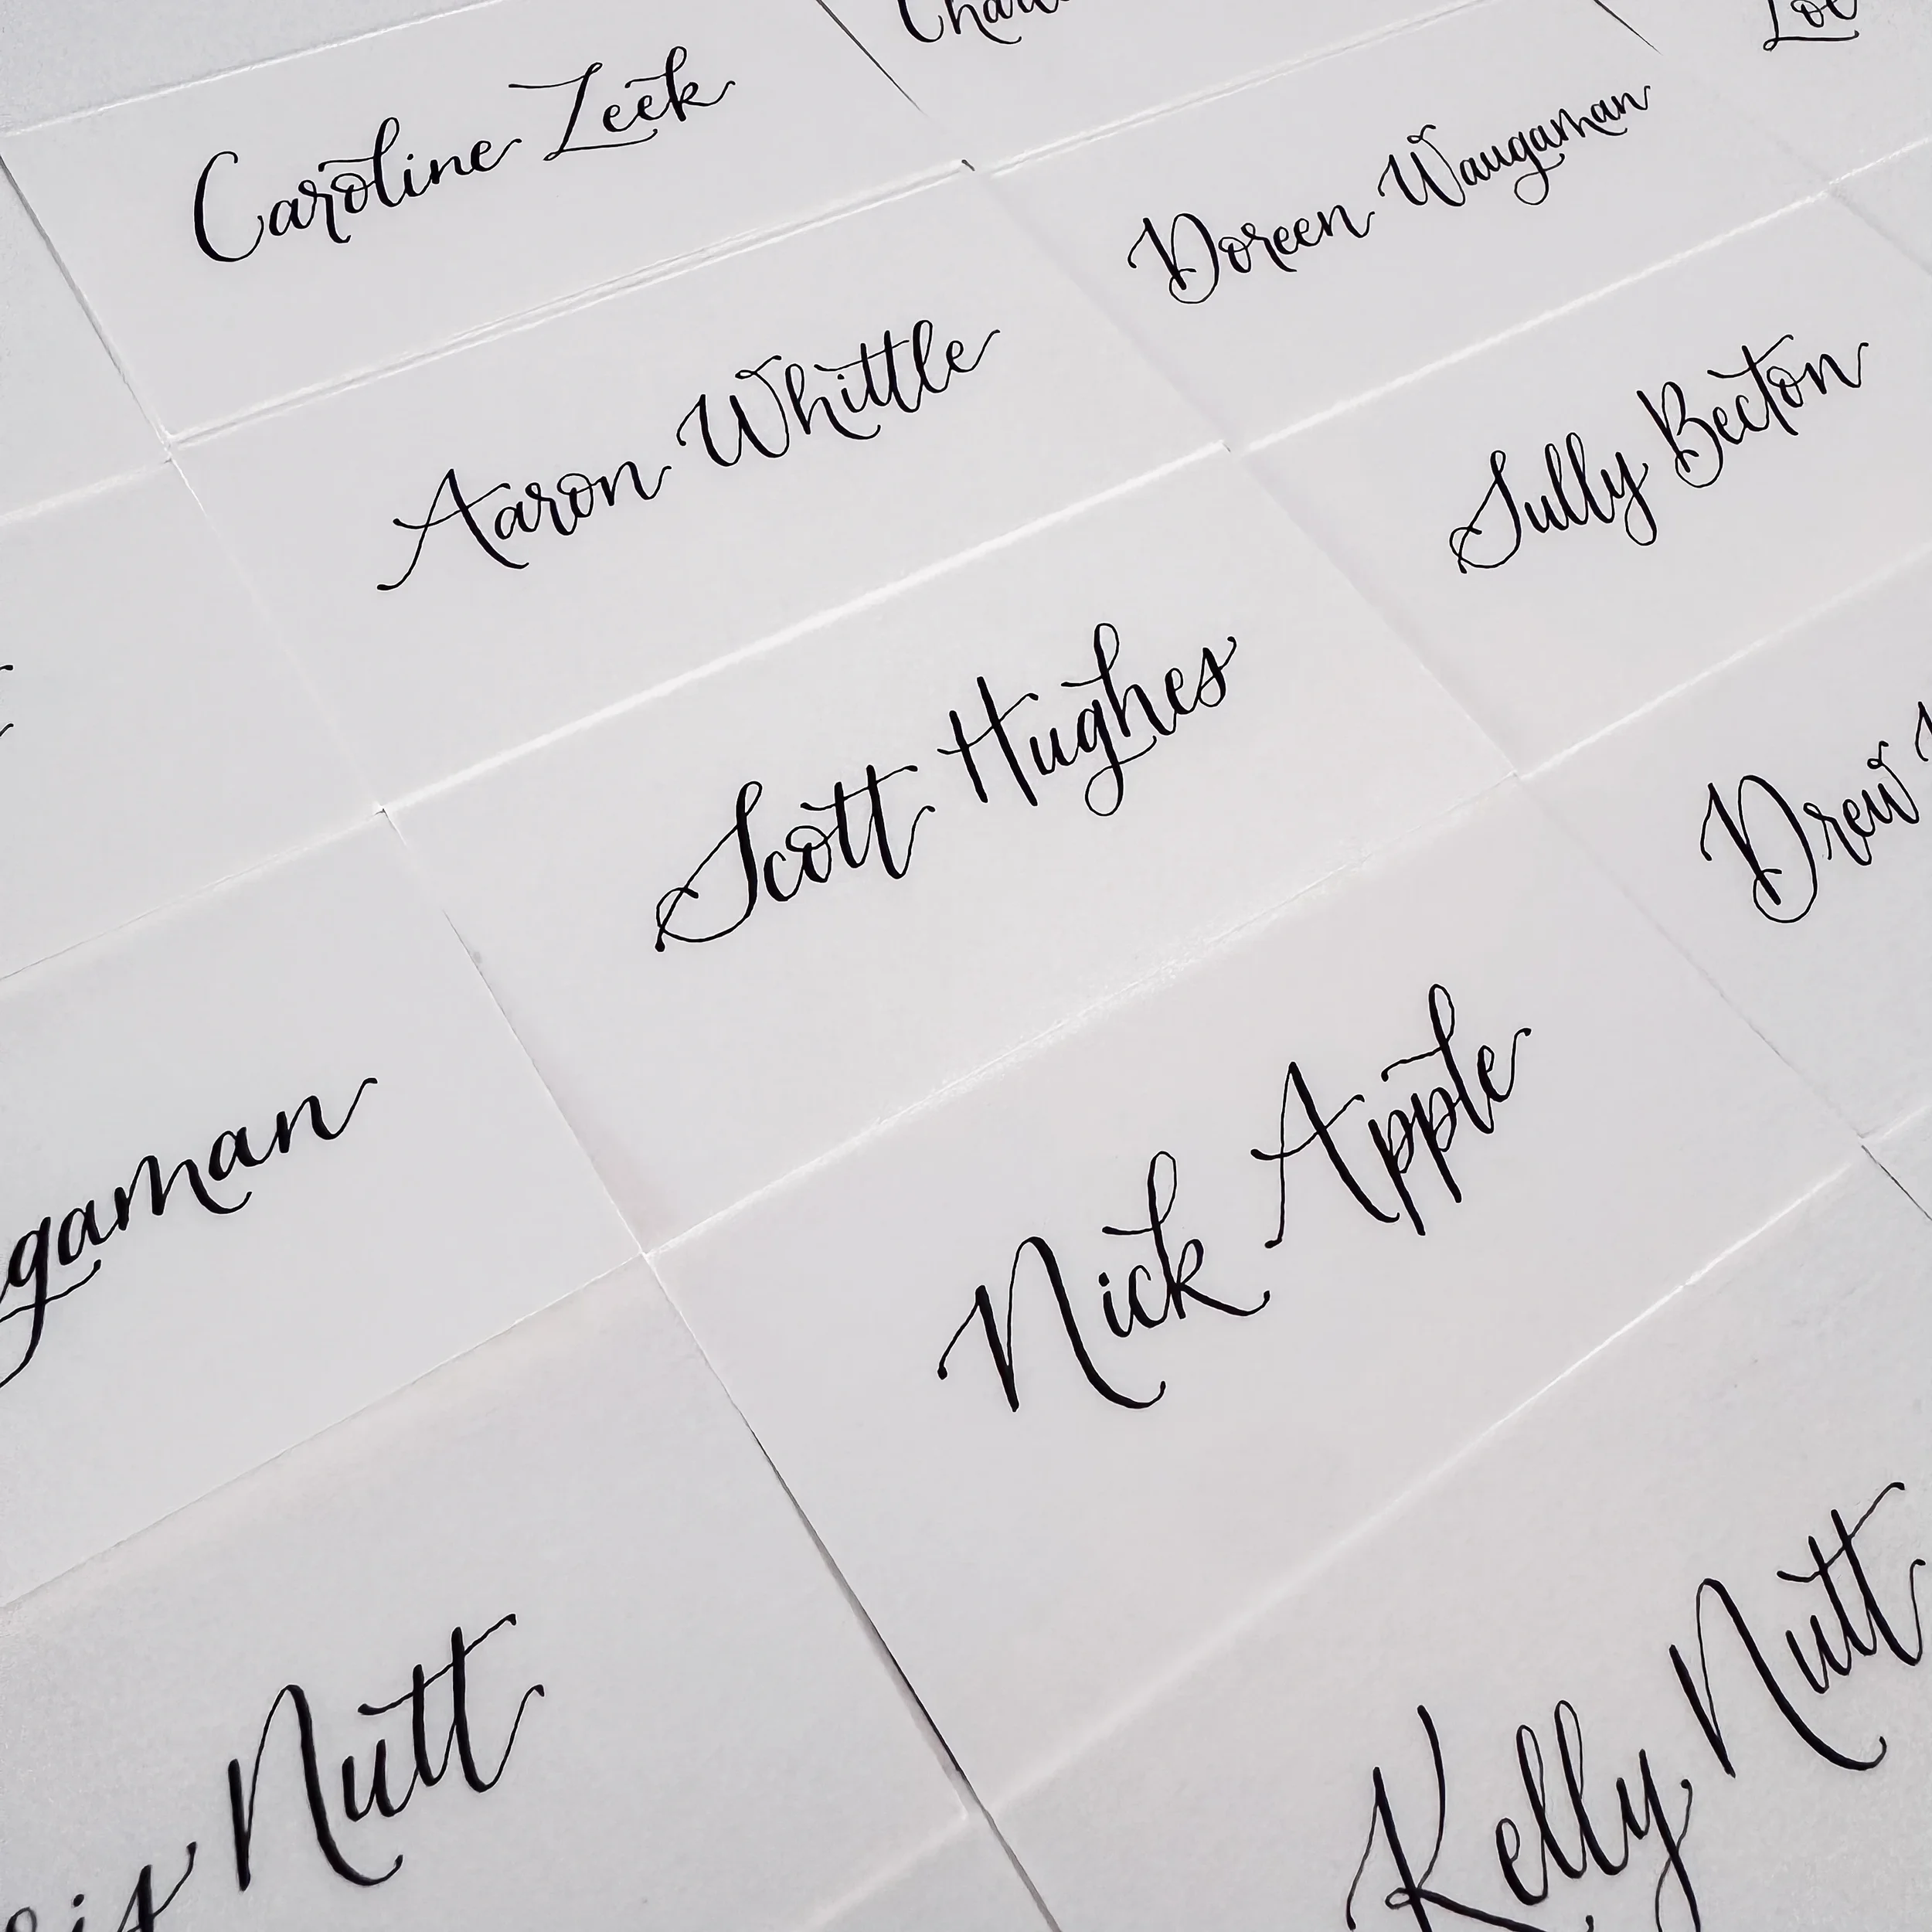 Caroline Zeek
Doreen Waugaman
Aaron Whittle
Sully Becton
Scott Hughes
Drew
Nick Apple
gaman
Nutt
Kelly Nutt